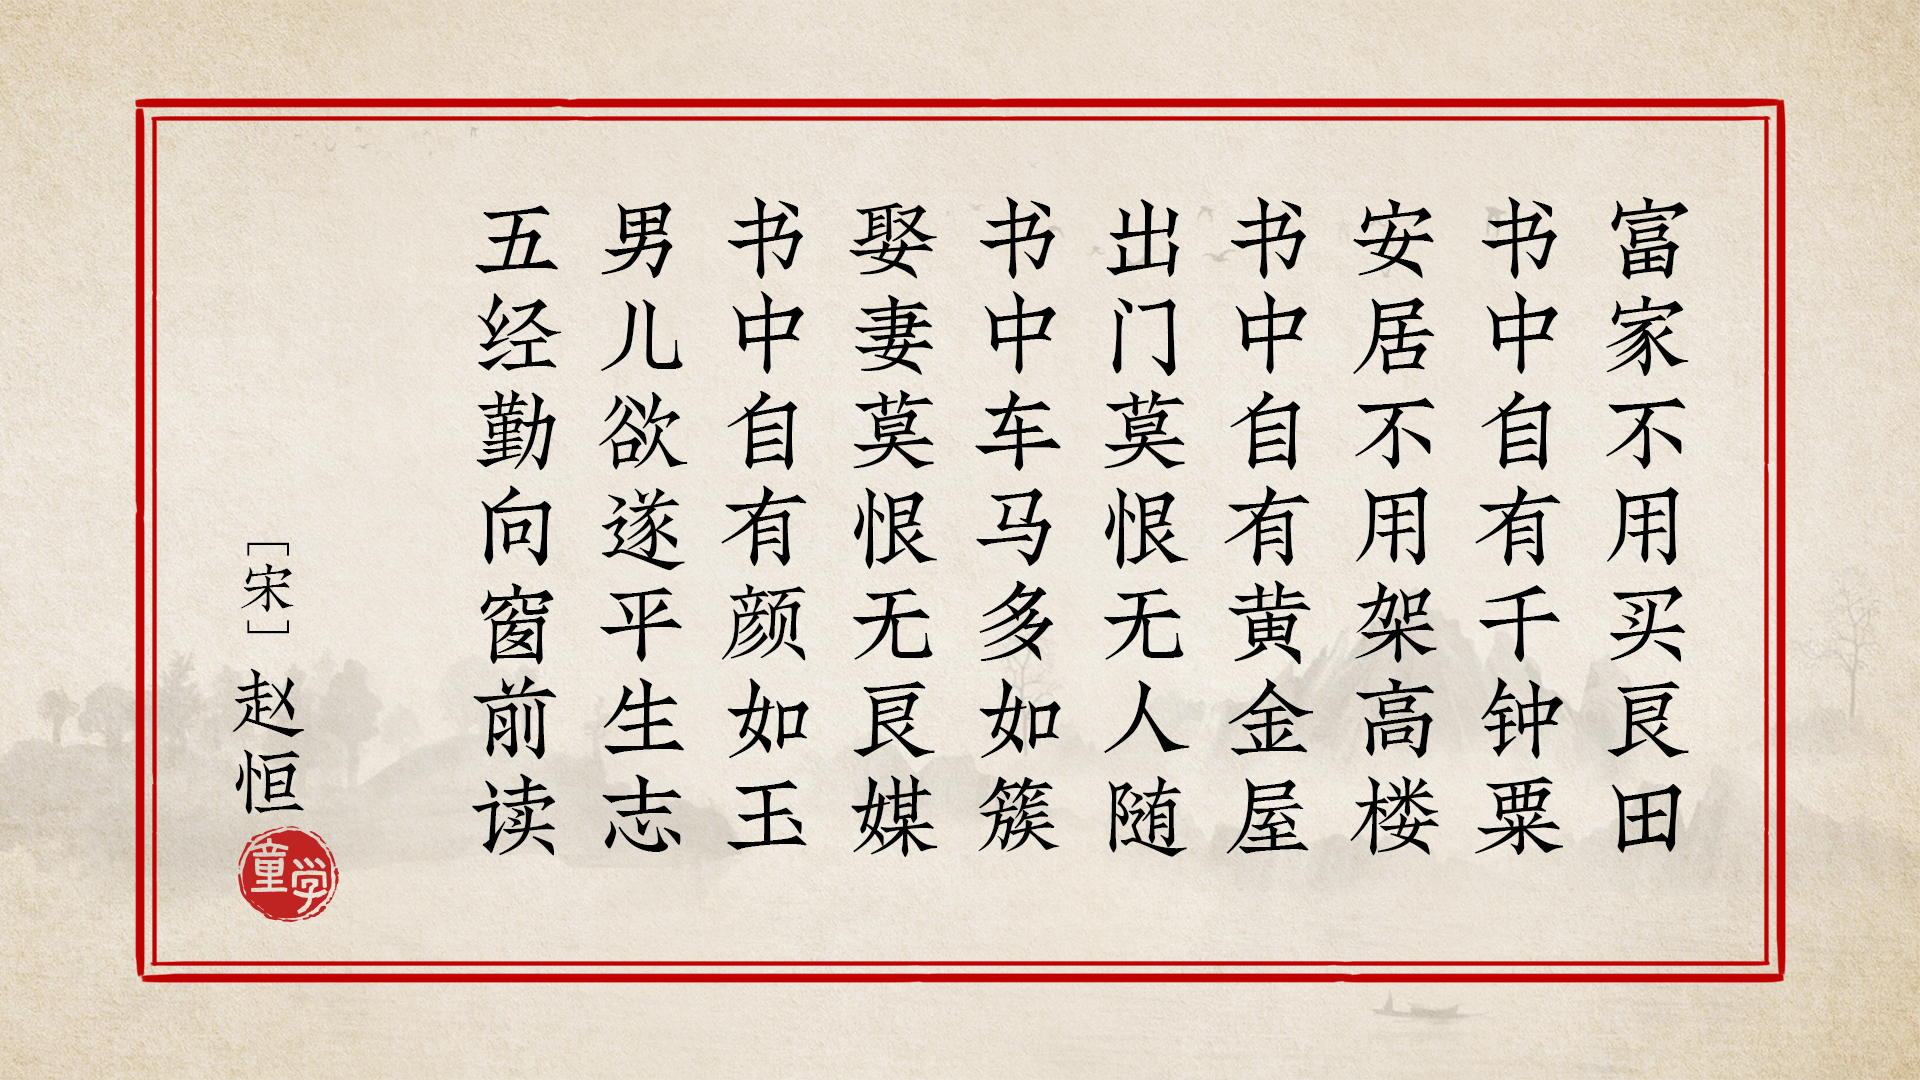 富家不用买艮田
书中自有千钟粟
安居不用架高楼
书中自有黄金屋
出门莫恨无人随
书中车马多如簇
娶妻莫恨无艮媒
书中自有颜如玉
男儿欲遂平生志
五经勤向窗前读
［宋］赵恒
童学